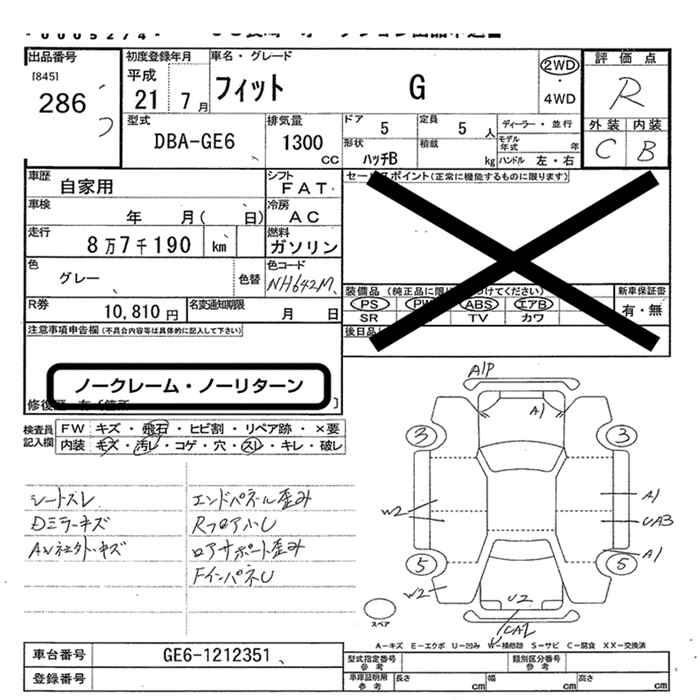 出品番号
[845]
286
初度登録年月
平成
21 7月
車名・グレード
フィット G
2WD
・
4WD
評価点
R
外装 内装
C B
型式
DBA-GE6
排気量
1300
CC
ドア 5
定員 5 人
形状 ハッチB
積載 kg
ディーラー・並行
モデル年式 年
ハンドル 左・右
車歴
自家用
シフト
FAT
車検
年 月( 日)
冷房
AC
走行
8万7千190 km
燃料
ガソリン
色
グレー
色替
色コード
NH642M
R券
10,810円
名変通知期限
月 日
セールスポイント(正常に機能するものに限ります)
装備品
PS PW ABS エアB
SR TV カワ
新車保証書
有・無
後日品
注意事項申告欄(不具合内容等は具体的に記入して下さい)
ノークレーム・ノーリターン
検査員
記入欄
FW キズ・飛石・ヒビ割・リペア跡・×要
内装・キズ・汚レ・コゲ・穴・スレ・キレ・破レ
シートスレ
Dミラーキズ
エンドパネル歪み
RフロアU
ロアサポート歪み
FインパネU
A1P
A1
3
3
W2
A1
UA3
A1
5
5
W2
U2
UA2
スペア
A-キズ E-エクボ U-凹み W-補修跡 S-サビ C-腐食 XX-交換済
車台番号
GE6-1212351
登録番号
型式指定番号
参考
類別区分番号
参考
車庫証明用
参考
長さ cm
幅 cm
高さ cm